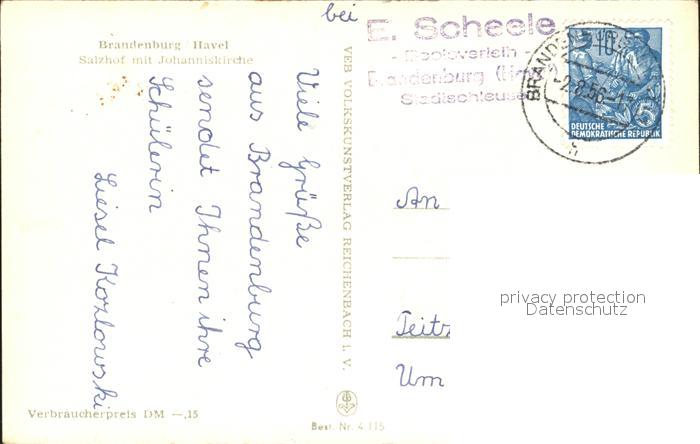 Brandenburg / Havel
Salzhof mit Johanniskirche
Viele Grüße
aus Brandenburg
sendet Ihnen ihre
Schülerin
Liesel Kozlowski
Verbraucherpreis DM —,15
VEB VOLKSKUNSTVERLAG REICHENBACH I. V.
Best. Nr. 4 115
bei
E. Scheele
- Bootsverleih -
Brandenburg (Hav
Stadtschleuse
BRANDEN
-2.8.56-1
h
10
5
DEUTSCHE
DEMOKRATISCHE REPUBLIK
An
Teitz
Um
privacy protection
Datenschutz